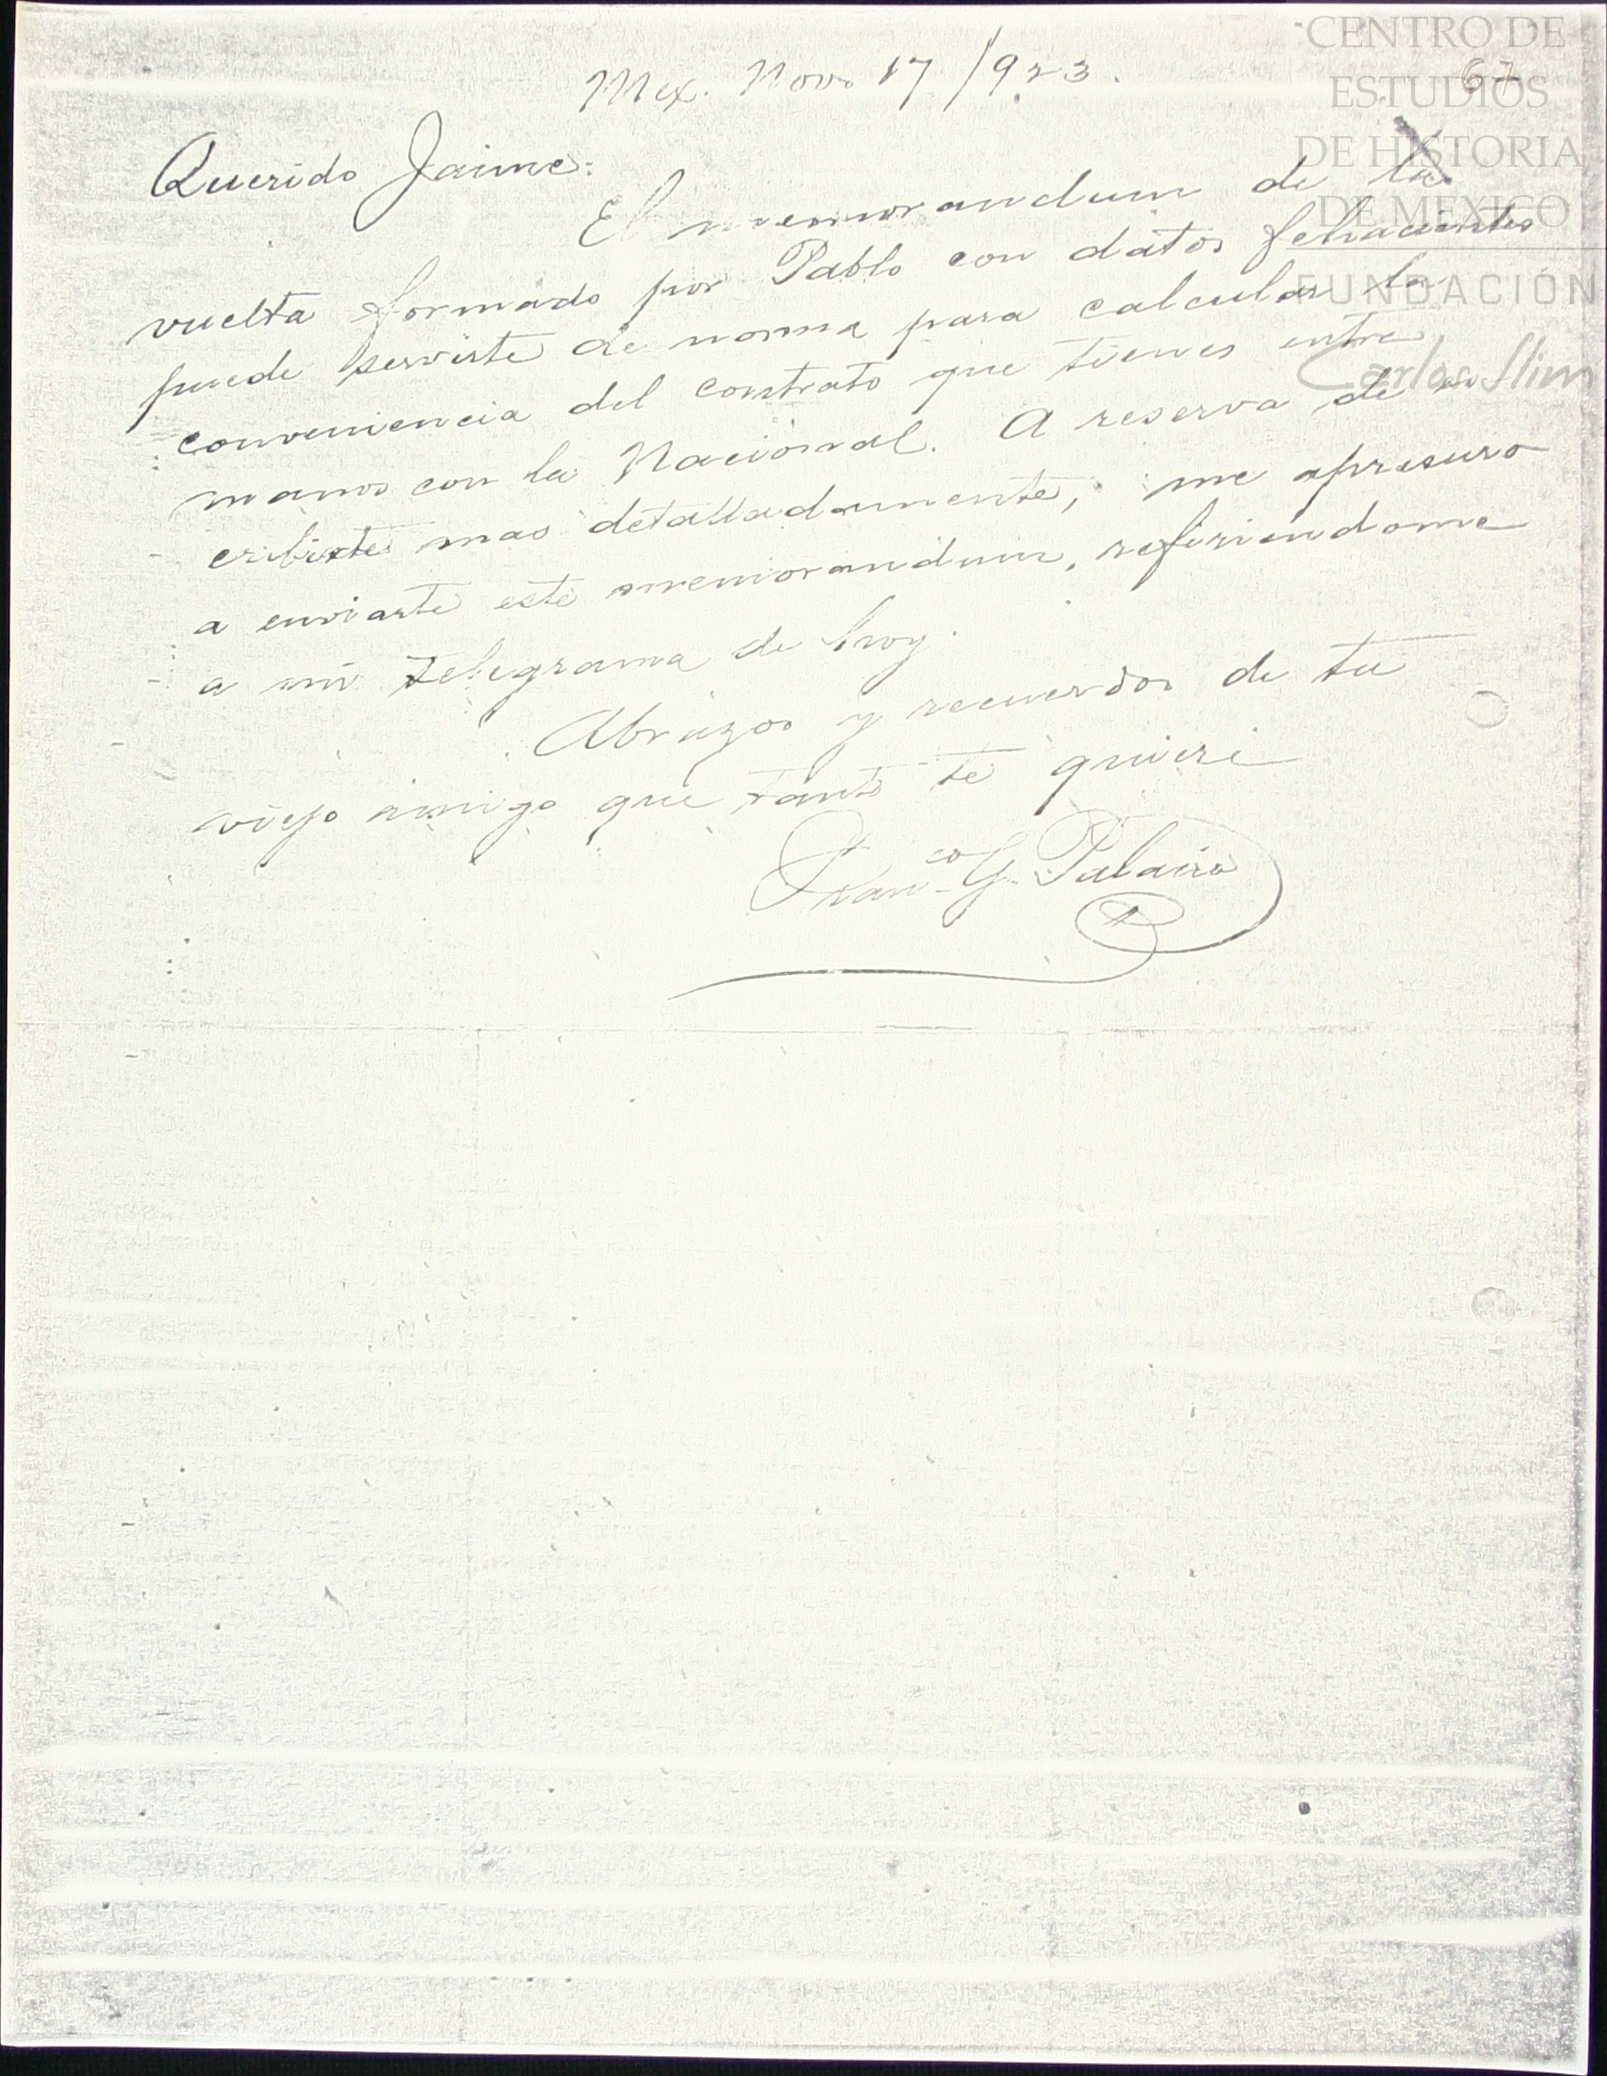 CENTRO DE
ESTUDIOS
DE HISTORIA
DE MEXICO
FUNDACIÓN
Carlos Slim
67
Mex. Nov. 17/923.
Querido Jaime:
El memorandum de la
vuelta formado por Pablo con datos fehacientes
puede servirte de norma para calcular la
conveniencia del contrato que tienes entre
manos con la Nacional. A reserva de es
cribirte mas detalladamente, me apresuro
a enviarte este memorandum, refiriendome
a mi telegrama de hoy.
Abrazos y recuerdos de tu
viejo amigo que tanto te quiere
Franco. G. Palacio